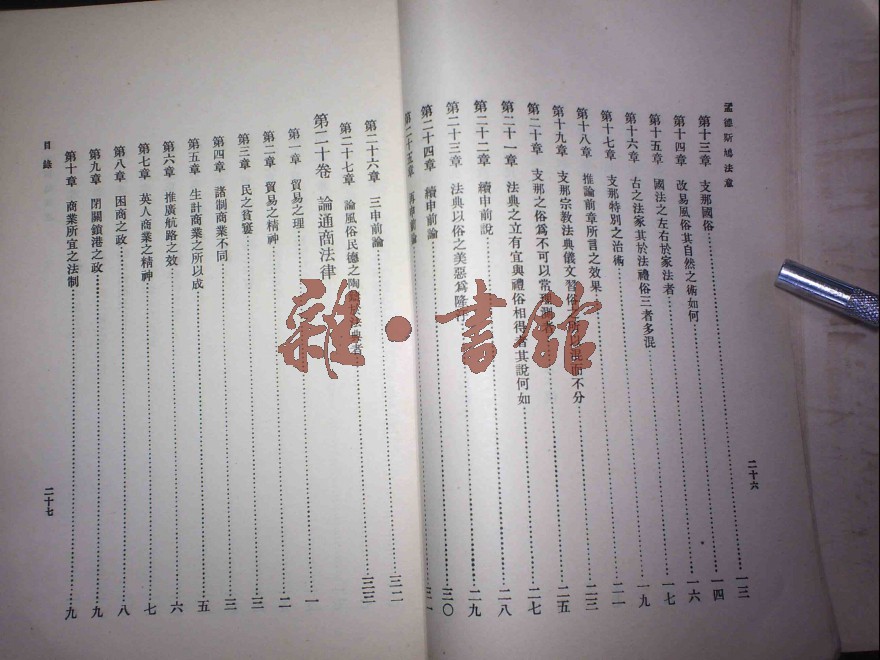 孟德斯鳩法意
第十三章 支那國俗……一三
第十四章 改易風俗其自然之術如何……一四
第十五章 國法之左右於家法者……一六
第十六章 古之法家其於法禮俗三者多混……一七
第十七章 支那特別之治術……一九
第十八章 推論前章所言之效果……二一
第十九章 支那宗教法典儀文習俗混而不分……二三
第二十章 支那之俗爲不可以常……二五
第二十一章 法典之立有宜與禮俗相得者其說何如……二七
第二十二章 續申前說……二八
第二十三章 法典以俗之美惡爲隆……二九
第二十四章 續申前論……三〇
第二十五章 再申前論……三一
二十六
第二十六章 三申前論……三二
第二十七章 論風俗民德之陶法典者……三三
第二十卷 論通商法律
第一章 貿易之理……一
第二章 貿易之精神……二
第三章 民之貧窶……三
第四章 諸制商業不同……三
第五章 生計商業之所以成……五
第六章 推廣航路之效……六
第七章 英人商業之精神……七
第八章 困商之政……八
第九章 閉關鎖港之政……九
第十章 商業所宜之法制……九
目錄
二十七
雜·書館